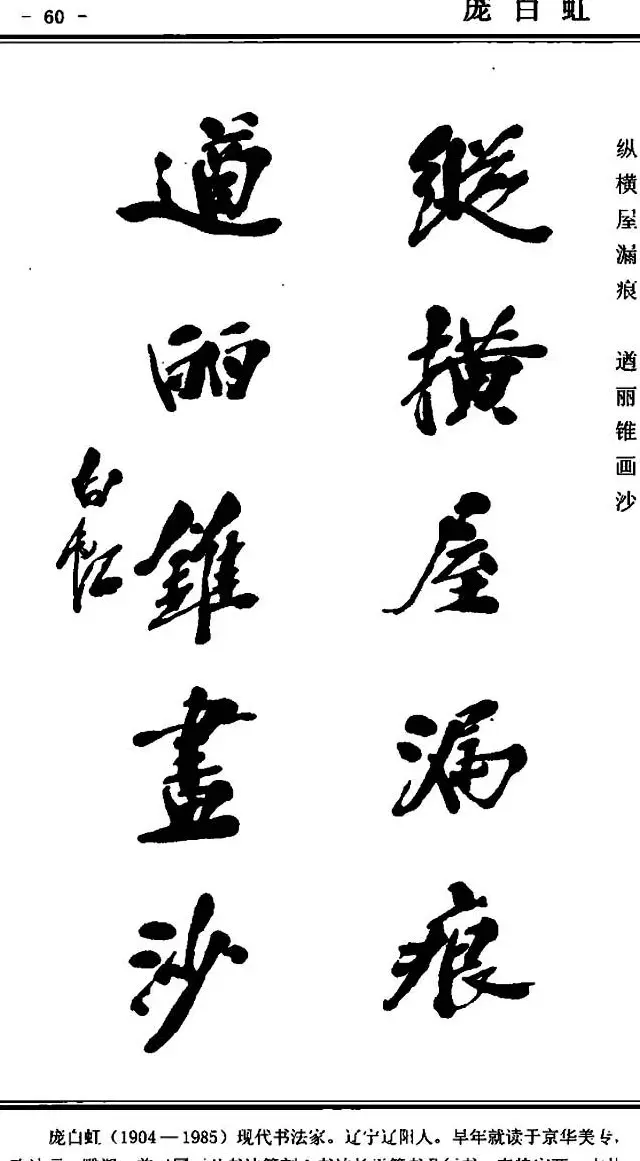 - 60 -
庞白虹
纵横屋漏痕 遒丽锥画沙
縱橫屋漏痕
遒丽錐畫沙
白虹
庞白虹（1904—1985）现代书法家。辽宁辽阳人。早年就读于京华美专，